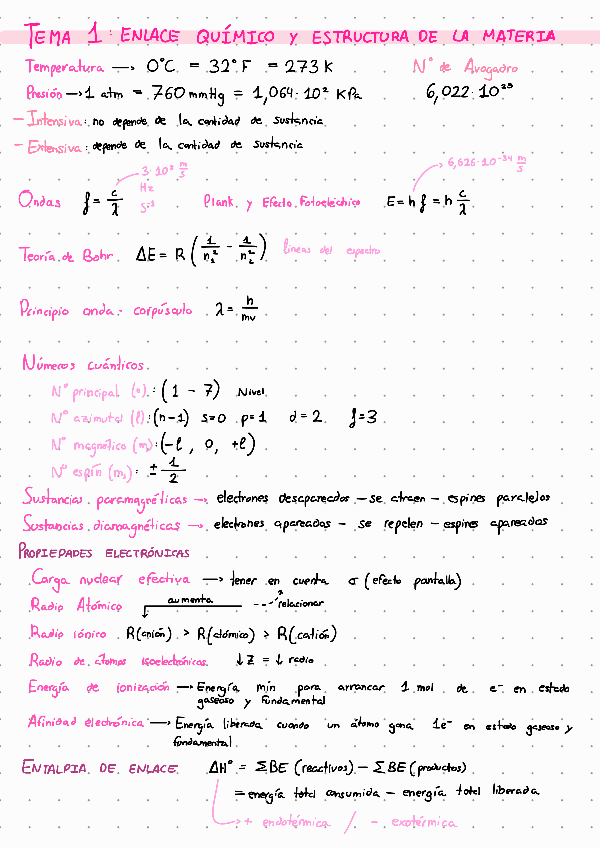 TEMA 1: ENLACE QUÍMICO Y ESTRUCTURA DE LA MATERIA
Temperatura → 0°C = 32°F = 273 K N° de Avogadro
Presión → 1 atm = 760 mmHg = 1,064·10² KPa 6,022·10²³
- Intensiva: no depende de la cantidad de sustancia
- Extensiva: depende de la cantidad de sustancia
3·10⁸ m/s 6,626·10⁻³⁴ m/s
Hz
Ondas f = c/λ s⁻¹ Plank y Efecto Fotoeléctrico E = h f = h c/λ
Teoría de Bohr ΔE = R (1/n₁² - 1/n₂²) líneas del espectro
Principio onda - corpúsculo λ = h/mv
Números cuánticos.
N° principal (n): (1 - 7) Nivel
N° azimutal (l): (n-1) s=0 p=1 d=2 f=3
N° magnético (m): (-l, 0, +l)
N° espín (ms): ± 1/2
Sustancias paramagnéticas → electrones desapareados - se atraen - espines paralelos
Sustancias diamagnéticas → electrones apareados - se repelen - espines apareados
PROPIEDADES ELECTRÓNICAS
Carga nuclear efectiva → tener en cuenta σ (efecto pantalla)
Radio Atómico aumenta relacionar
Radio iónico R(anión) > R(atómico) > R(catión)
Radio de átomos isoelectrónicos ↓Z = ↓ radio
Energía de ionización → Energía mín para arrancar 1 mol de e⁻ en estado
gaseoso y fundamental
Afinidad electrónica → Energía liberada cuando un átomo gana 1e⁻ en estado gaseoso y
fundamental
ENTALPIA DE ENLACE ΔH° = ΣBE (reactivos) - ΣBE (productos)
= energía total consumida - energía total liberada
+ endotérmica / - exotérmica